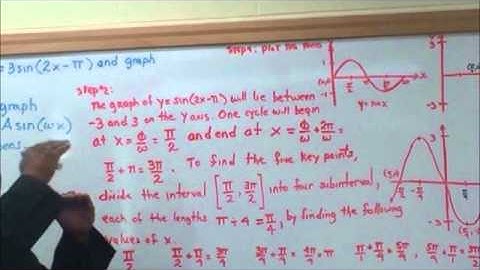 = 3 sin(2x-π) and graph
graph
A sin(ωx)
Step#2:
The graph of y= sin(2x-π) will lie between
-3 and 3 on the Y axis. One cycle will begin
at x = ϕ/ω = π/2 and end at x = ϕ/ω + 2π/ω =
π/2 + π = 3π/2. To find the five key points,
divide the interval [π/2, 3π/2] into four subinterval,
each of the lengths π÷4 = π/4, by finding the following
values of x.
π/2 π/2 + π/4 = 3π/4 3π/4 + π/4 = 4π/4 = π π/1 + π/4 = 5π/4 5π/4 + π/4 =
x
y= sin x
3
-3
3
-3